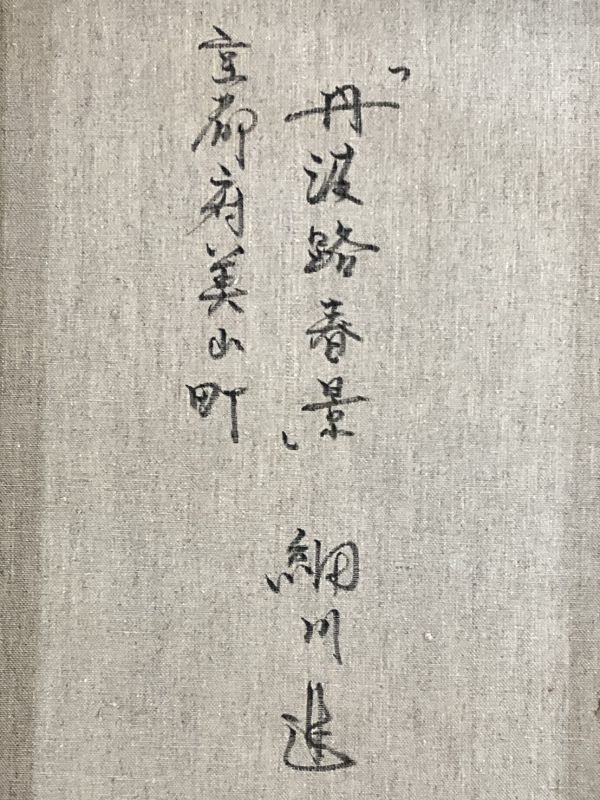 「丹波路春景」 細川進
京都府美山町